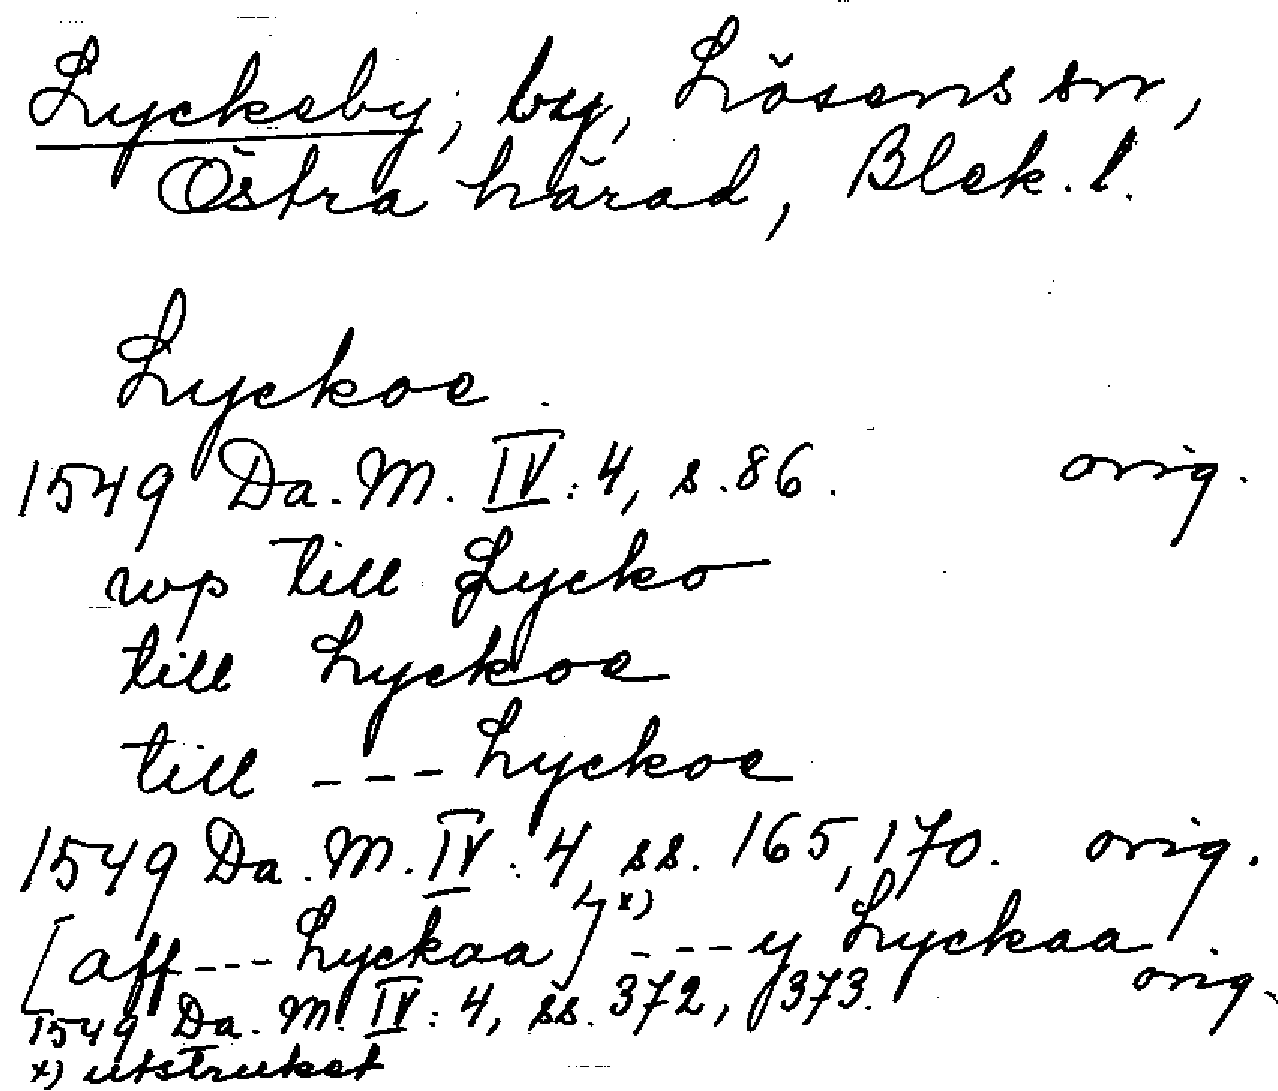 Lyckeby, by, Lösens sn,
Östra härad, Blek. l.
Lyckoe.
1549 Da. M. IV: 4, s. 86. orig.
wp till Lycko
till Lyckoe
till --- Lyckoe
1549 Da. M. IV: 4, ss. 165, 170. orig.
[aff --- Lyckaa] x) --- y Lyckaa
1549 Da. M. IV: 4, ss. 372, 373. orig.
x) utstruket